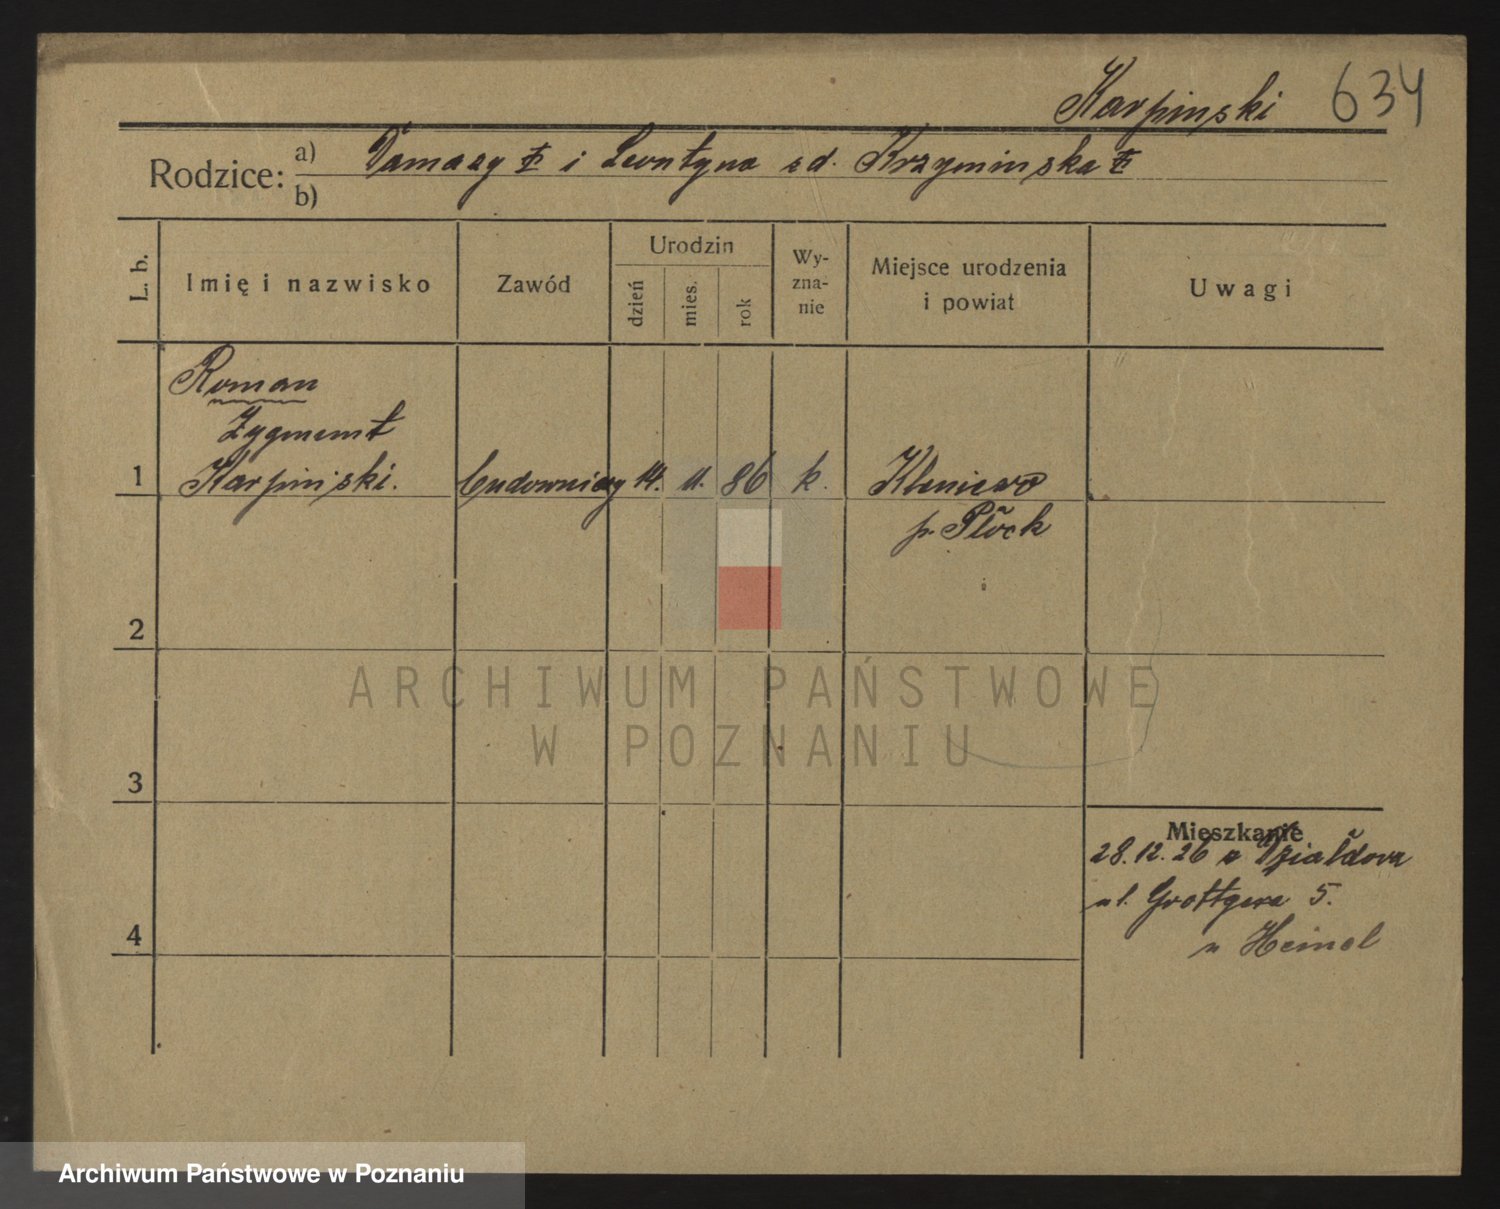 Karpinski 634
Rodzice: a) Damazy i Leontyna z d. Krzyminska
b)
L. b.
Imię i nazwisko
Zawód
Urodzin
dzień
mies.
rok
Wy-
zna-
nie
Miejsce urodzenia
i powiat
Uwagi
Roman
Zygmunt
1 Karpinski. budowniczy 14. 11. 86 k.
p. Płock
2
ARCHIWUM PAŃSTWOWE
W POZNANIU
3
Mieszkanie
28.12.26 z Działdowa
ul. Grottgera 5.
u Heinol
4
Archiwum Państwowe w Poznaniu